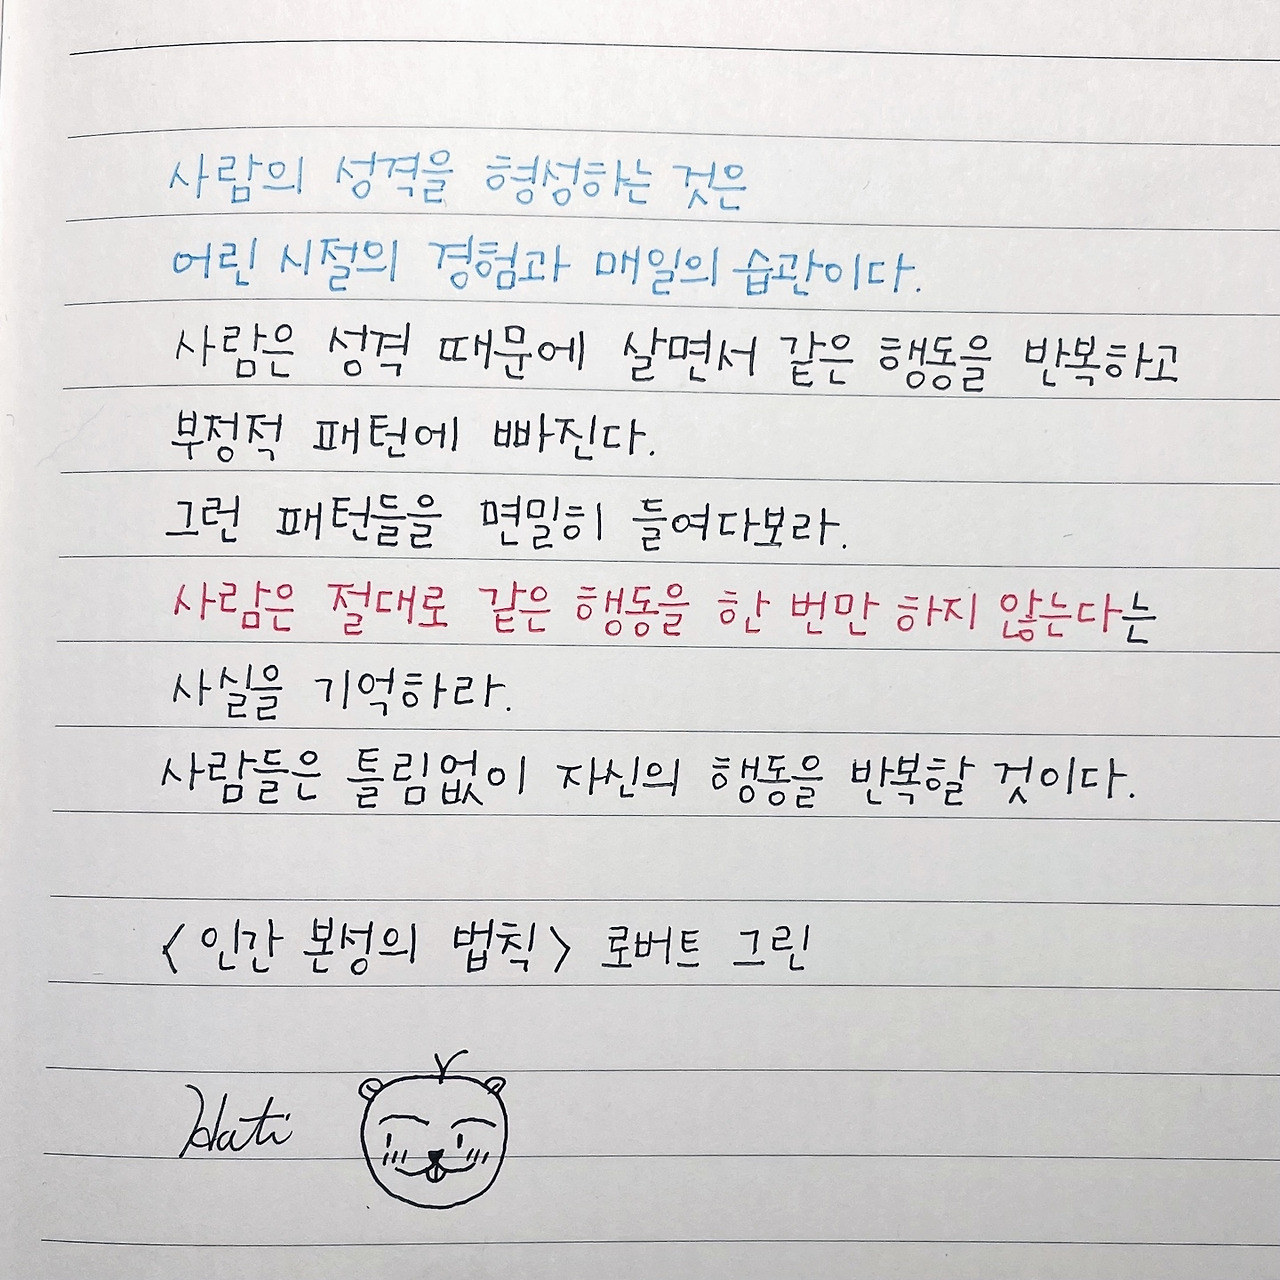 사람의 성격을 형성하는 것은
어린 시절의 경험과 매일의 습관이다.
사람은 성격 때문에 살면서 같은 행동을 반복하고
부정적 패턴에 빠진다.
그런 패턴들을 면밀히 들여다보라.
사람은 절대로 같은 행동을 한 번만 하지 않는다는
사실을 기억하라.
사람들은 틀림없이 자신의 행동을 반복할 것이다.
<인간 본성의 법칙> 로버트 그린
Hati